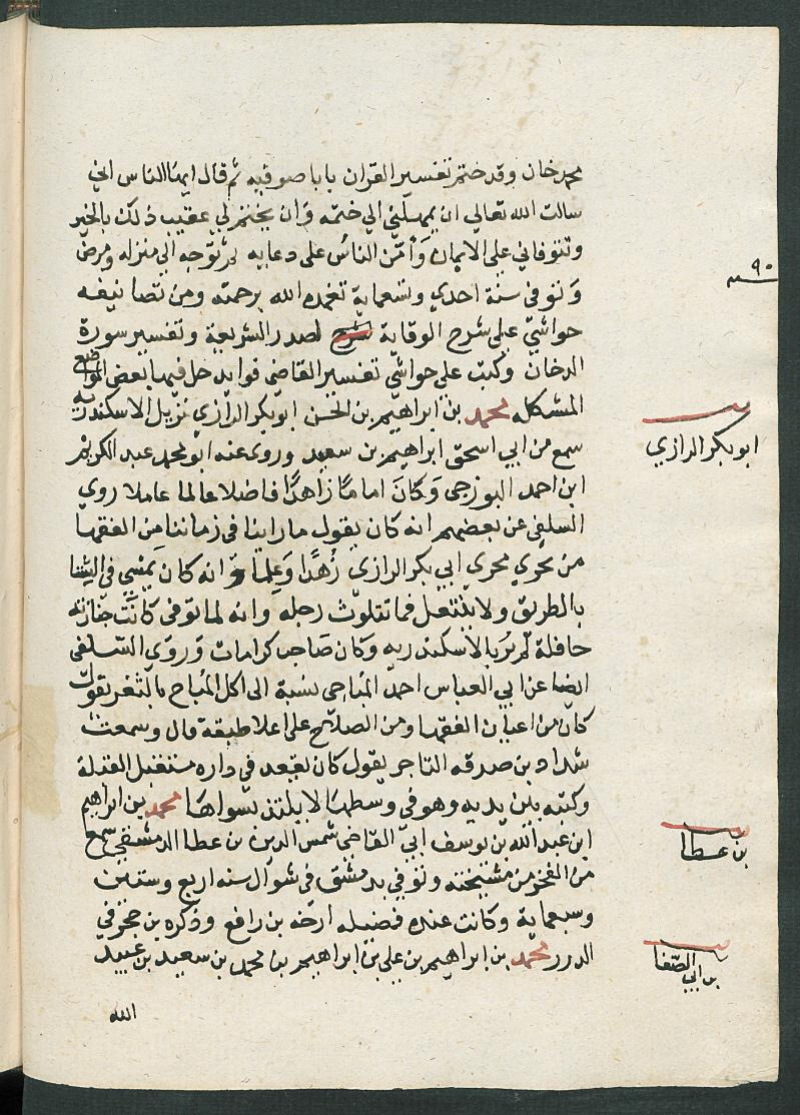 محمد خان وقد ختم تفسير القران بايا صوفيه ثم قال ايها الناس اني
سالت الله تعالي ان يمهلني الي ختمه وان يختم لي عقيب ذلك بالخير
وتتوفاني علي الايمان وأمّن الناس على دعايه ثم توجه الي منزله ومرض
وتوفي سنة احدي وتسعماية تغمده الله برحمته ومن تصانيفه
٩٠١ سنه
حواشي علي شرح الوقاية لصدر الشريعة وتفسير سورة
الدخان وكتب علي حواشي تفسير القاضي فوايد حل فيها بعض المواضع
المشكله محمد بن ابراهيم بن الحسن ابو بكر الرازي نزيل الاسكندريه
ابو بكر الرازي
سمع من ابي اسحق ابراهيم بن سعيد وروي عنه ابو محمد عبد الكريم
ابن احمد البوزجى وكان اماما زاهدا فاضلا عالما عاملا روي
السلفي عن بعضهم انه كان يقول ما راينا في زماننا من الفقها
من يجري مجري ابي بكر الرازي زهدا وعلما وانه كان يمشي في الشتا
بالطريق ولا ينتعل فما تتلوث رجله وانه لما توفي كانت جنازته
حافلة لم ير بالاسكندريه وكان صاحب كرامات وروي السلفي
ايضا عن ابي العباس احمد المباحى نسبة الى اكل المباح بالثغر يقول
كان من اعيان الفقها ومن الصلاح على اعلا طبقة قال وسمعت
شداد بن صدقه التاجر يقول كان يقعد في داره مستقبل القبلة
وكتبه بين يديه وهو في وسطها لا يلتذ بسواها محمد بن ابراهيم
ابن عبد الله بن يوسف ابي القاضي شمس الدين بن عطا الدمشقي سمع
بن عطا
من الفخر من مشيخته وتوفي بدمشق في شوال سنه اربع وستين
وسبعماية وكانت عنده فضيله ارخه بن رافع وذكره بن حجر في
الدرر محمد بن ابراهيم بن علي بن ابراهيم بن محمد بن سعيد بن عبيد
بن ابي الصفا
الله